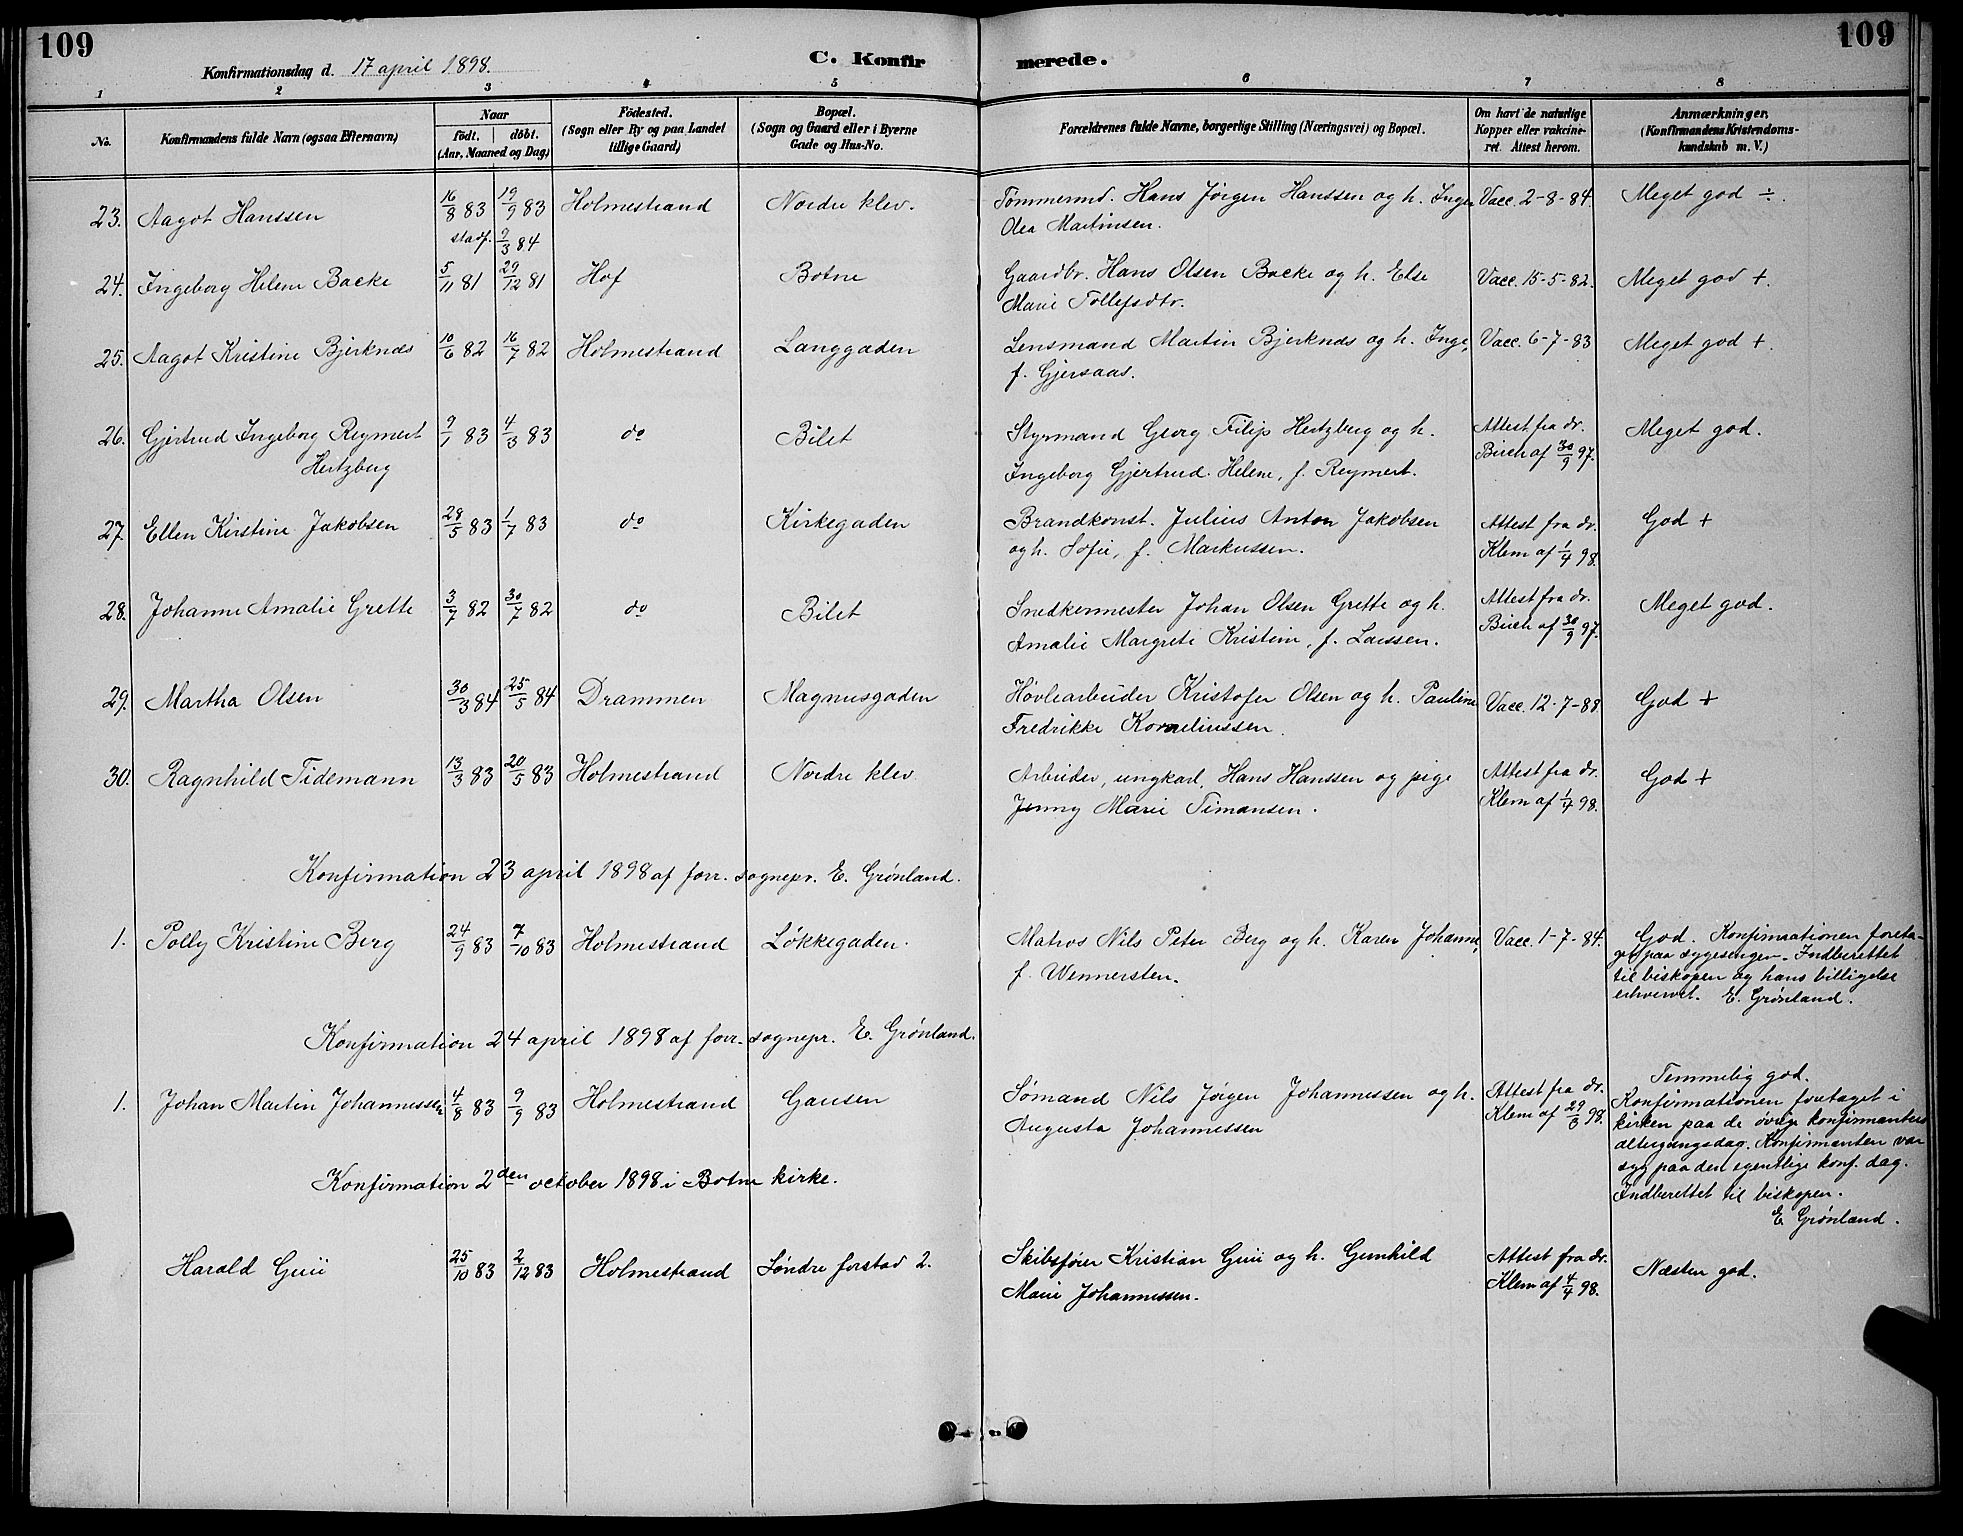 109
109
Konfirmationsdag d. 17 april 1898.
C. Konfirmerede.
1 2 3 4 5 6 7 8
No.
Konfirmandens fulde Navn (ogsaa Efternavn)
Naar
födt. | döbt.
(Aar, Maaned og Dag)
Födested.
(Sogn eller By og paa Landet
tillige Gaard)
Bopæl.
(Sogn og Gaard eller i Byerne
Gade og Hus-No.
Forældrenes fulde Navne, borgerlige Stilling (Næringsvei) og Bopæl.
Om havt de naturlige
Kopper eller vakcine-
ret. Attest herom.
Anmærkninger.
(Konfirmandens Kristendoms-
kundskab m. V.)
23. Aagot Hanssen 16/8 83 19/9 83 Holmestrand Nordre klev. Tømmermd. Hans Jørgen Hanssen og h. Inger Vacc. 2-8-84. Meget god ÷.
stadf. 9/3 84 Olea Martinsen.
24. Ingeborg Helene Backe 5/11 81 29/12 81 Hof Botne Gaardbr. Hans Olsen Backe og h. Else Vacc. 15-5-82. Meget god +.
Marie Tollefsdtr.
25. Aagot Kristine Bjerknæs 10/6 82 16/7 82 Holmestrand Langgaden Lensmand Martin Bjerknæs og h. Inge, Vacc. 6-7-83 Meget god +.
f. Gjersaas.
26. Gjertrud Ingeborg Reymert 9/1 83 4/3 83 do Bilet Styrmand Georg Filip Hertzberg og h. Attest fra dr. Meget god.
Hertzberg Ingeborg Gjertrud Helene, f. Reymert. Birch af 30/9 97.
27. Ellen Kirstine Jakobsen 28/5 83 1/7 83 do Kirkegaden Brandkonst. Julius Anton Jakobsen Attest fra dr. God +
og h. Sofie, f. Markussen. Klem af 1/4 98.
28. Johanne Amalie Grette 3/7 82 30/7 82 do Bilet Snedkermester Johan Olsen Grette og h. Attest fra dr. Meget god.
Amalie Margrete Kristine, f. Larssen. Birch af 30/9 97.
29. Martha Olsen 30/3 84 25/5 84 Drammen Magnusgaden Høvlearbeider Kristofer Olsen og h. Pauline Vacc. 12-7-88 God +
Fredrikke Korneliussen.
30. Ragnhild Tidemann 13/3 83 20/5 83 Holmestrand Nordre klev Arbeider, ungkarl, Hans Hanssen og pige Attest fra dr. God +
Jenny Marie Timansen. Klem af 1/4 98.
Konfirmation 23 april 1898 af forr. sognepr. E. Grønland.
1. Polly Kristine Berg 24/9 83 7/10 83 Holmestrand Løkkegaden. Matros Nils Peter Berg og h. Karen Johanne, Vacc. 1-7-84. God. Konfirmationen foreta-
f. Wennersten. get paa sygesengen. Indberettet
til biskopen og hans billigelse
erhvervet. E. Grønland.
Konfirmation 24 april 1898 af forr. sognepr. E. Grønland.
1. Johan Martin Johannessen 4/8 83 9/9 83 Holmestrand Gausen Sømand Nils Jørgen Johannessen og h. Attest fra dr. Temmelig god.
Augusta Johannessen Klem af 29/3 98. Konfirmationen foretaget i
kirken paa de øvrige konfirmanters
altergangsdag. Konfirmanten var
syg paa den egentlige konf. dag.
Indberettet til biskopen.
E. Grønland.
Konfirmation 2den october 1898 i Botne kirke.
Harald Guii 25/10 83 2/12 83 Holmestrand Søndre forstad 2. Skibsfører Kristian Guii og h. Gunhild Attest fra dr. Næsten god.
Marie Johannessen. Klem af 4/4 98.